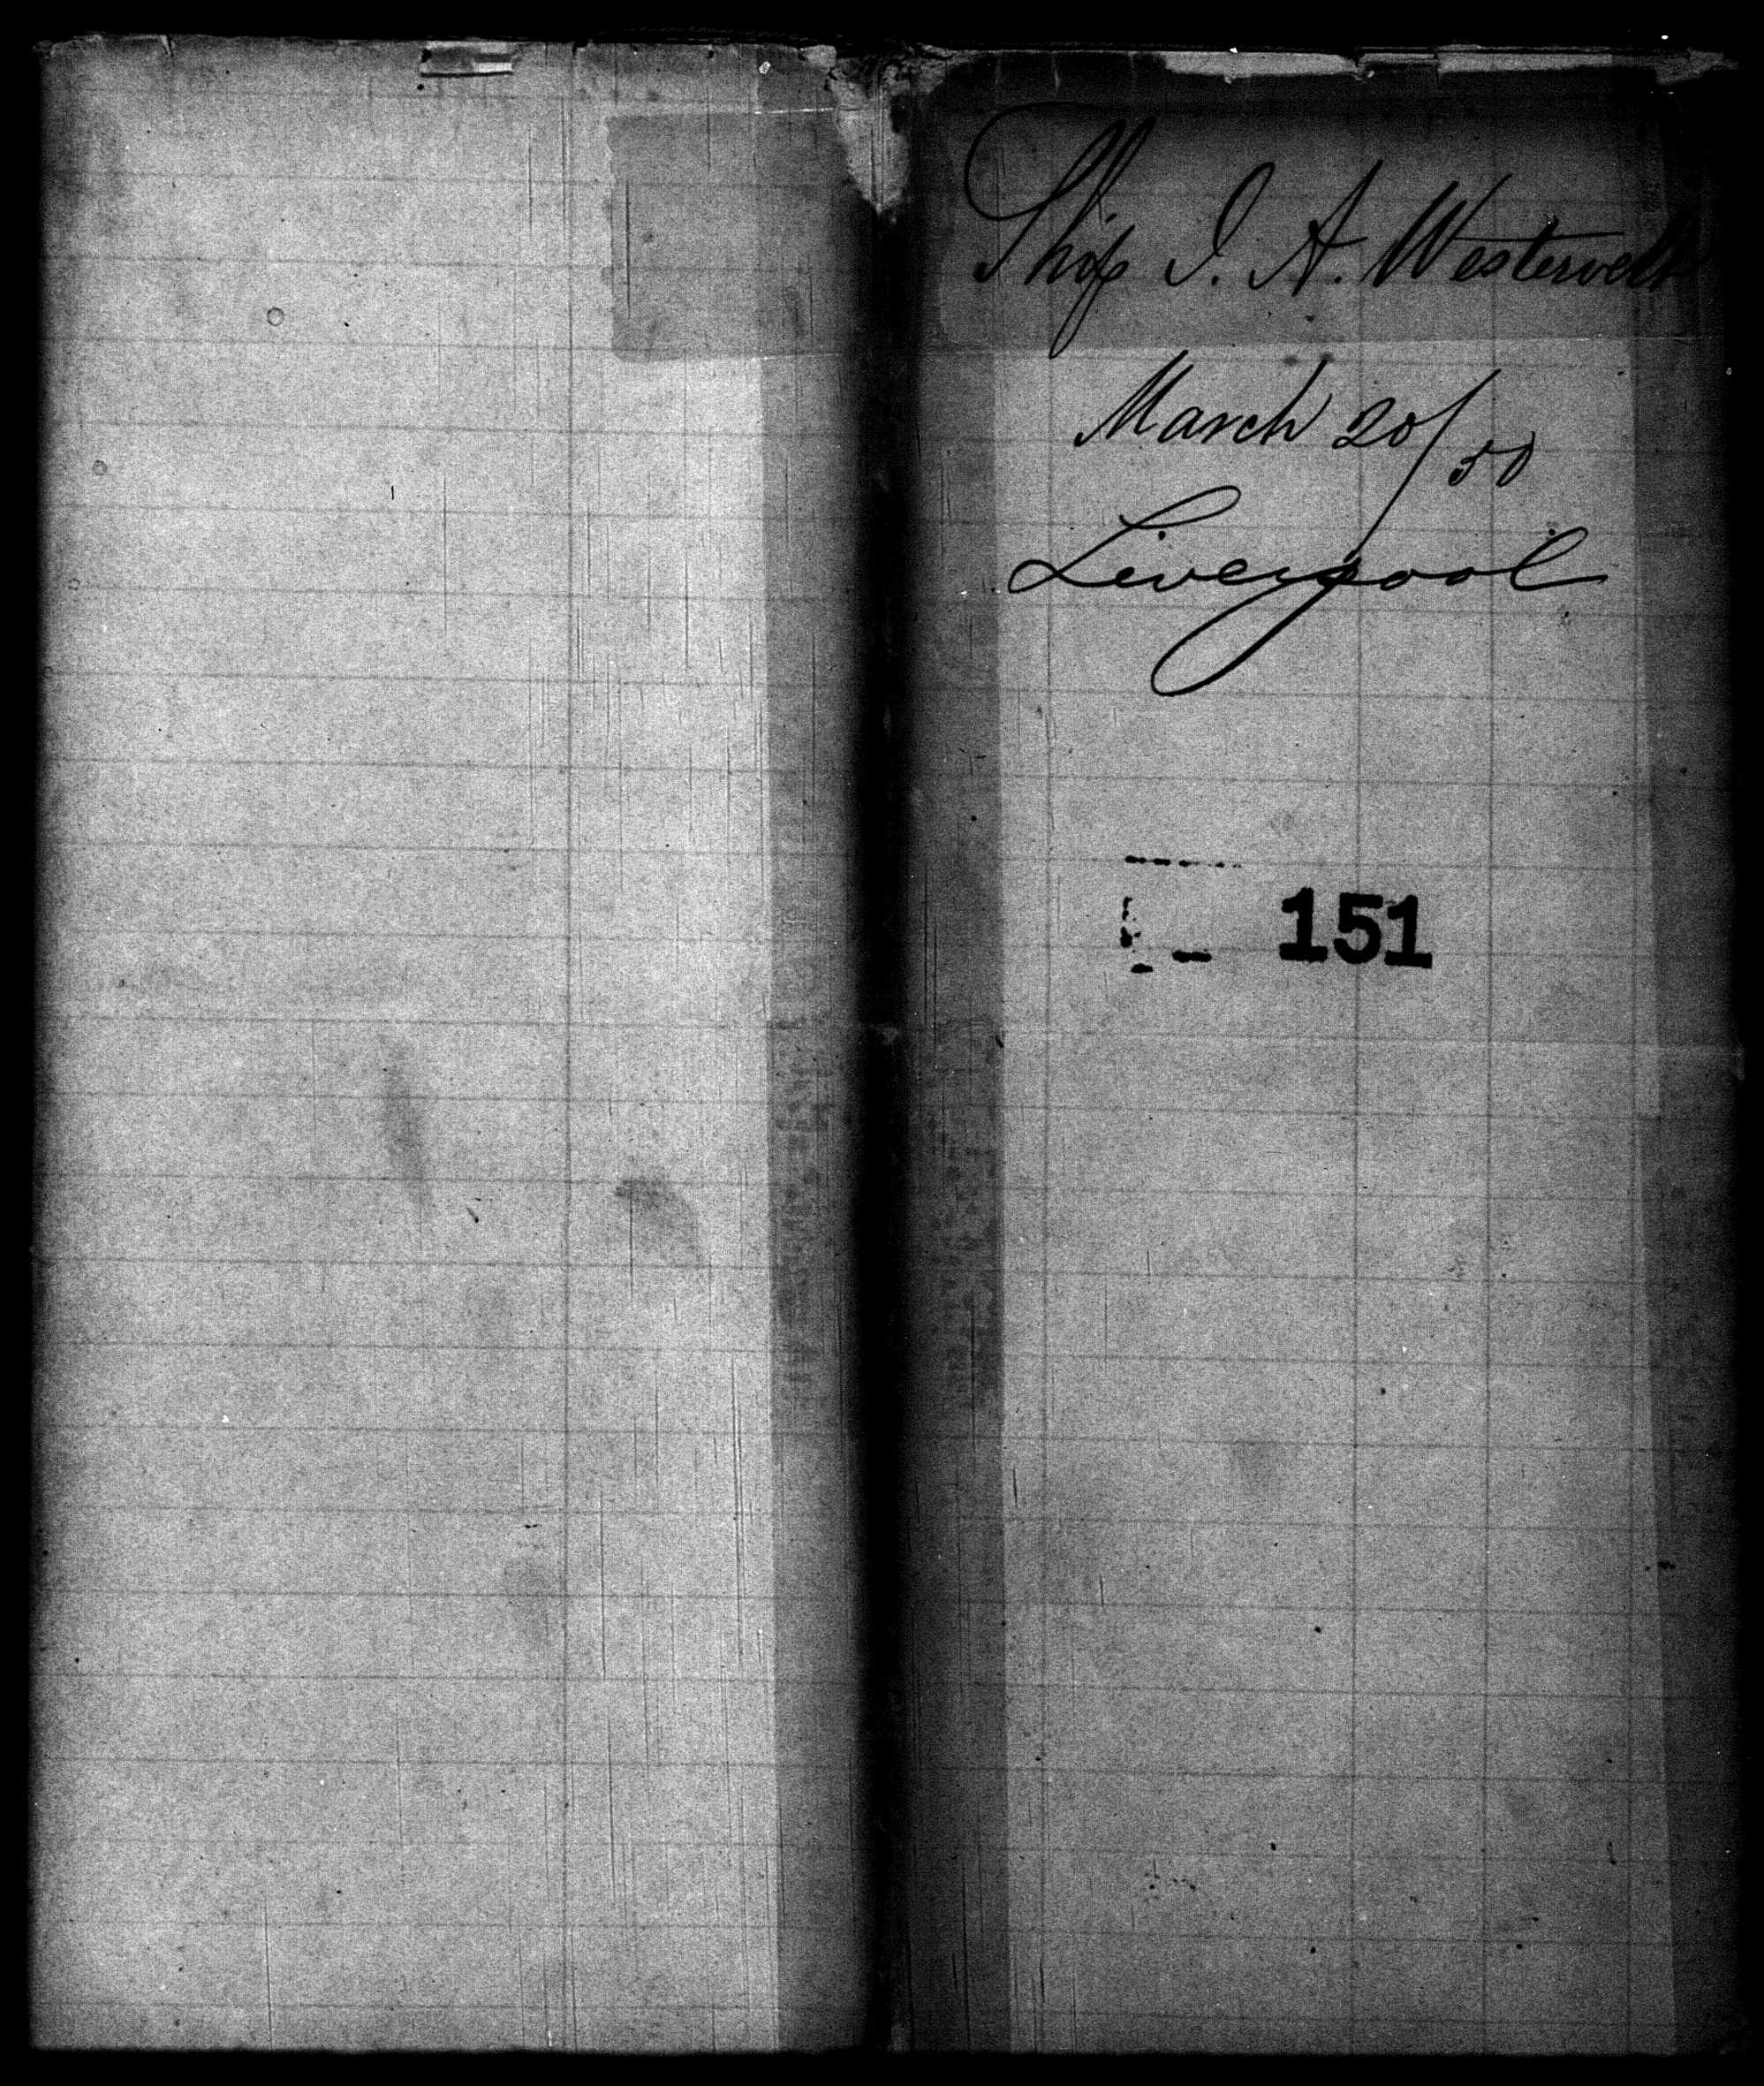 Ship I. A. Westervelt
March 20/50
Liverpool
151